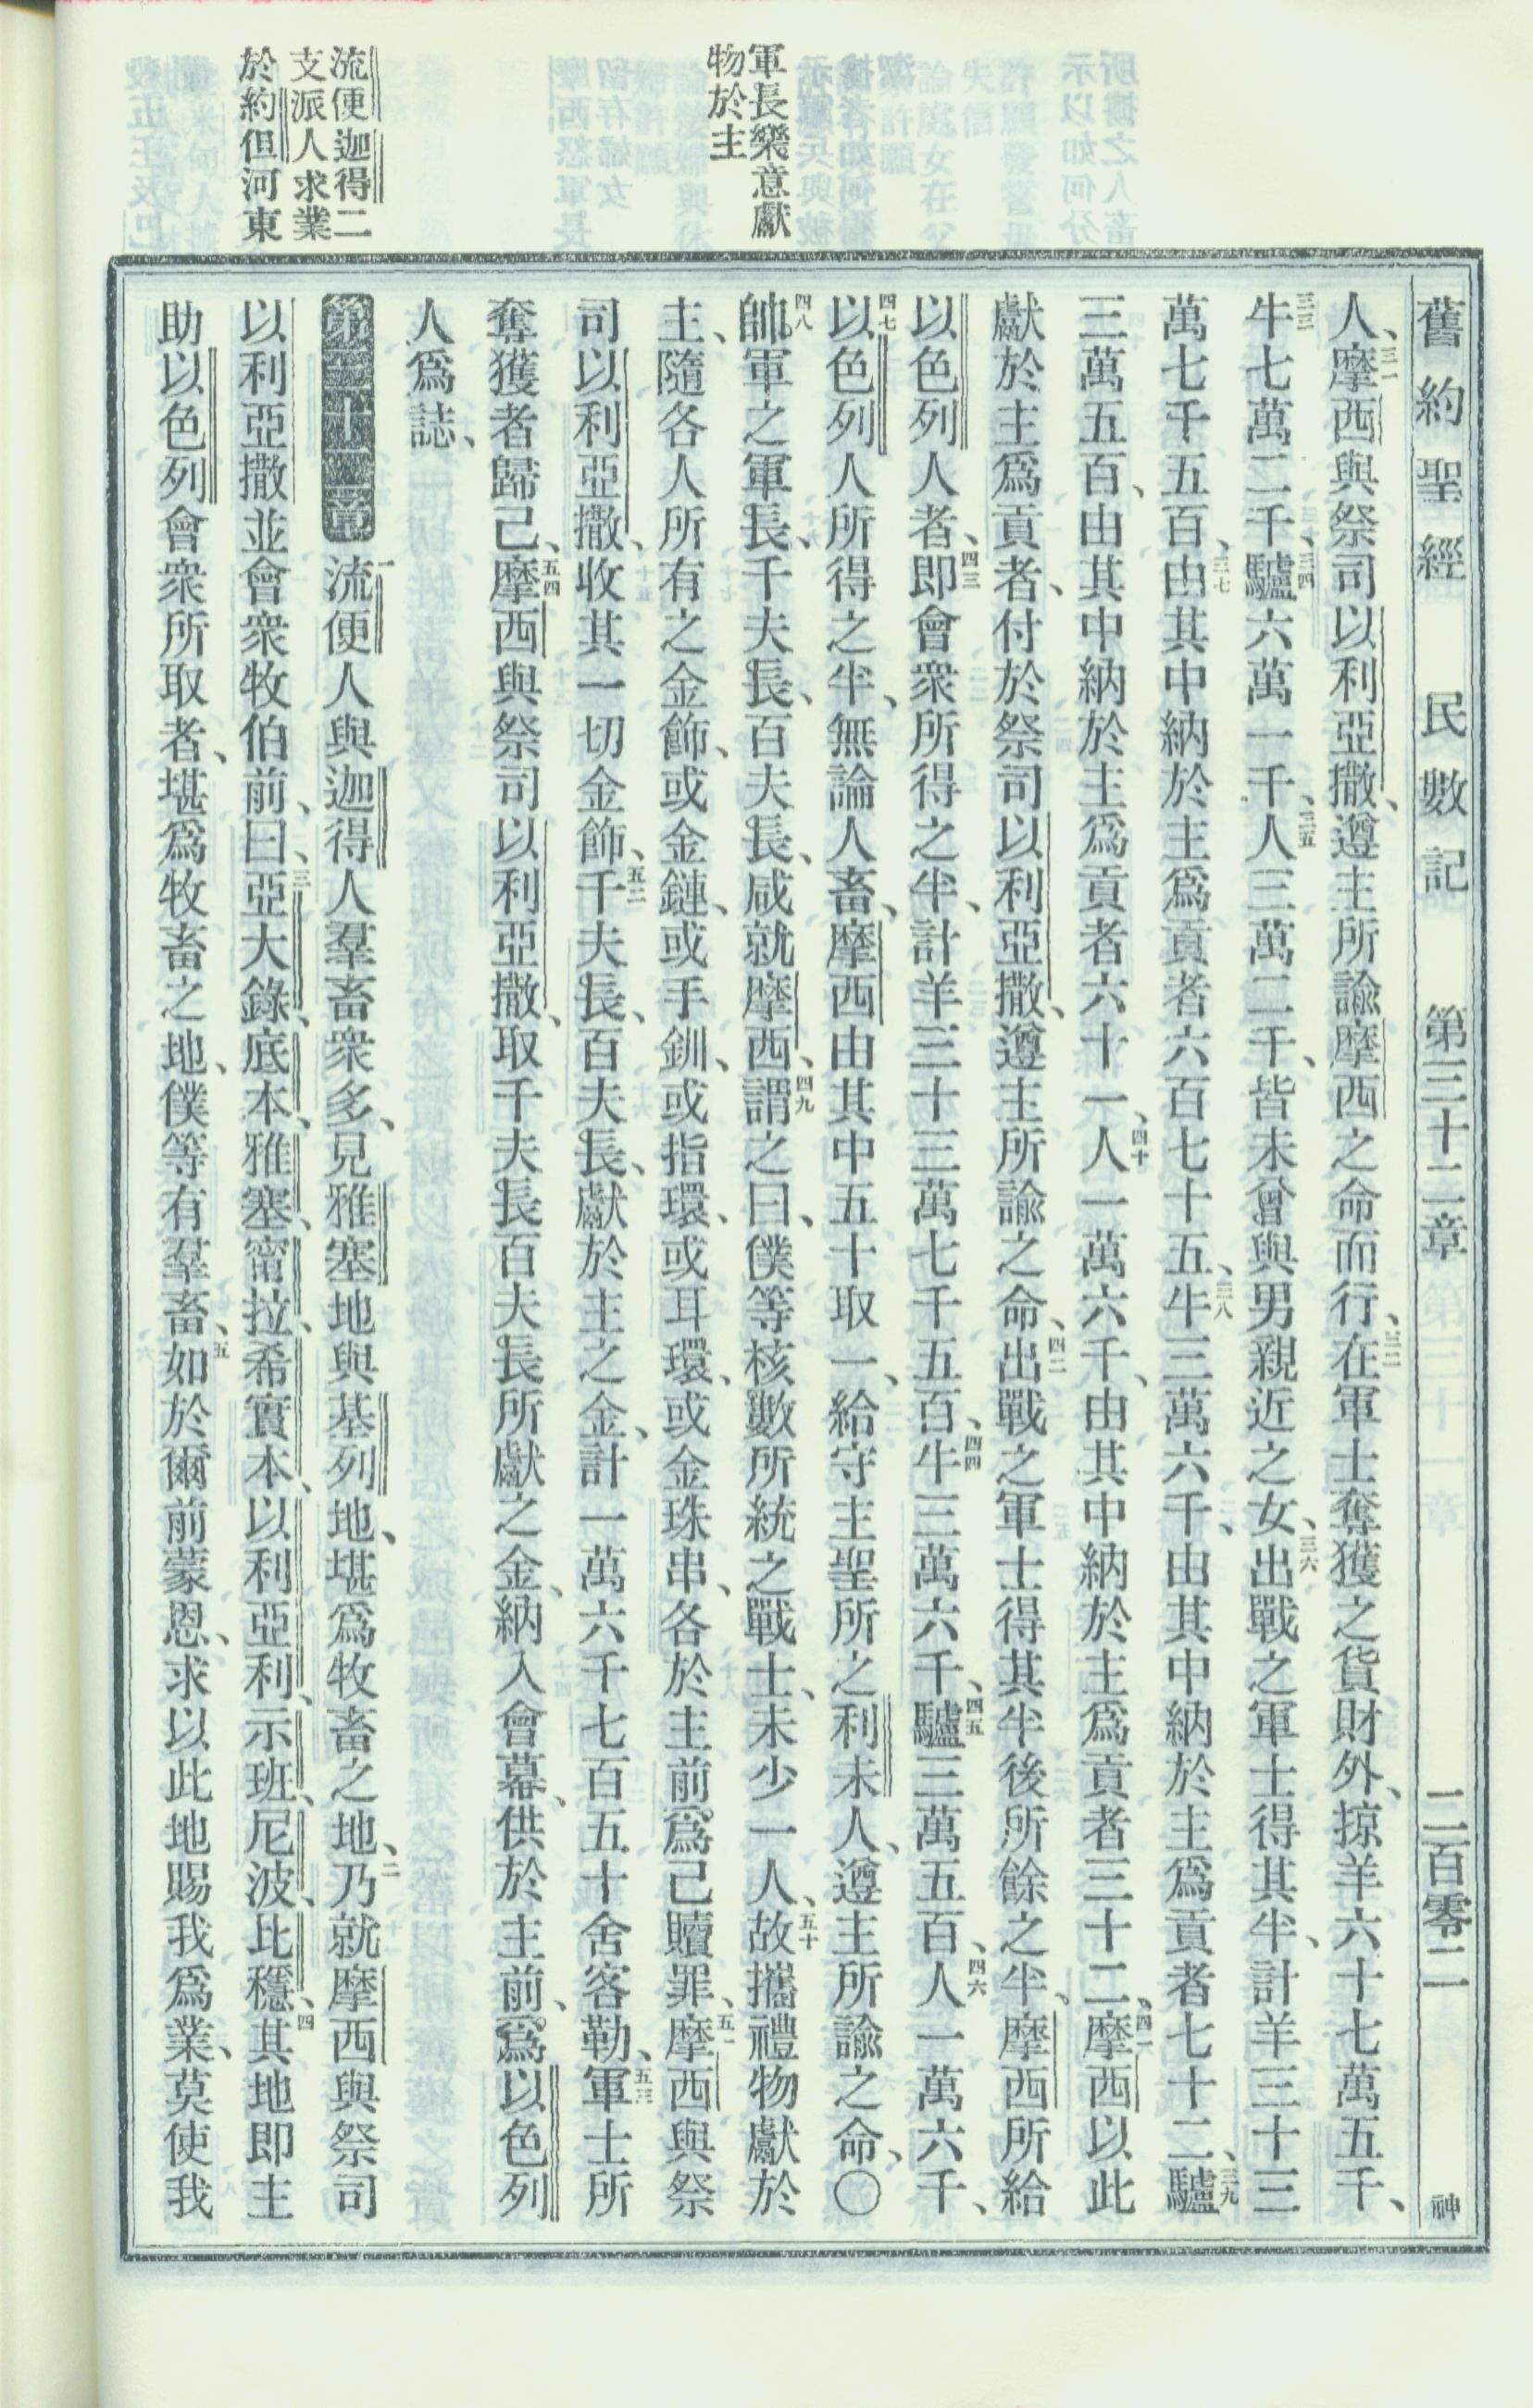 舊約聖經　民數記　第三十二章　二百零二　神
軍長樂意獻
物於主
流便迦得二
支派人求業
於約但河東
人、三一摩西與祭司以利亞撒、遵主所諭摩西之命而行、三二在軍士奪獲之貨財外、掠羊六十七萬五千、
三三牛七萬二千、三四驢六萬一千、三五人三萬二千、皆未曾與男親近之女、三六出戰之軍士得其半、計羊三十三
萬七千五百、三七由其中納於主爲貢者六百七十五、三八牛三萬六千、由其中納於主爲貢者七十二、三九驢
三萬五百、由其中納於主爲貢者六十一、四十人一萬六千、由其中納於主爲貢者三十二、四一摩西以此
獻於主爲貢者、付於祭司以利亞撒、遵主所諭之命、四二出戰之軍士得其半後所餘之半、摩西所給
以色列人者、四三即會衆所得之半、計羊三十三萬七千五百、四四牛三萬六千、四五驢三萬五百、四六人一萬六千、
四七以色列人所得之半、無論人畜、摩西由其中五十取一、給守主聖所之利未人、遵主所諭之命、〇
四八帥軍之軍長、千夫長、百夫長、咸就摩西、四九謂之曰、僕等核數所統之戰士、未少一人、五十故攜禮物獻於
主、隨各人所有之金飾、或金鏈、或手釧、或指環、或耳環、或金珠串、各於主前爲己贖罪、五一摩西與祭
司以利亞撒、收其一切金飾、五二千夫長、百夫長、獻於主之金、計一萬六千七百五十舍客勒、五三軍士所
奪獲者歸己、五四摩西與祭司以利亞撒、取千夫長百夫長所獻之金、納入會幕、供於主前、爲以色列
人爲誌、
第三十二章　一流便人與迦得人羣畜衆多、見雅塞地與基列地、堪爲牧畜之地、二乃就摩西與祭司
以利亞撒並會衆牧伯前、曰、三亞大錄、底本、雅塞、甯拉、希實本、以利亞利、示班、尼波、比穩、四其地即主
助以色列會衆所取者、堪爲牧畜之地、僕等有羣畜、五如於爾前蒙恩、求以此地賜我爲業、莫使我